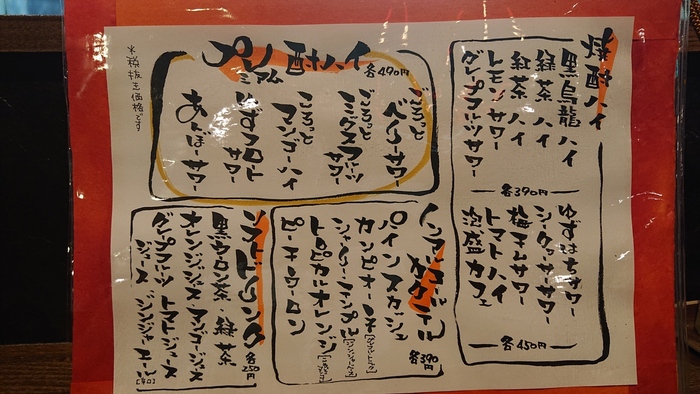 焼酎ハイ
黒烏龍ハイ
緑茶ハイ
紅茶ハイ
レモンサワー
グレプフルツサワー
各390円
ゆずはちサワー
シークヮーサーサワー
梅干しサワー
トマトハイ
泡盛カフェ
各450円
プレミアム酎ハイ
各490円
ごろっと
ベリーサワー
ごろっと
ミックスフルーツ
サワー
ごろっと
マンゴーハイ
ゆずフロート
サワー
あんずサワー
※税抜き価格です
ノンアルコール
カクテル
各390円
パインスカッシュ
カンピオーネ
シャリーテンプル
トロピカルオレンジ
ピーチウーロン
ソフトドリンク
各250円
黒ウーロン茶・緑茶
オレンジジュース マンゴージュース
グレプフルツ トマトジュース
ジュース ジンジャエール[辛口]